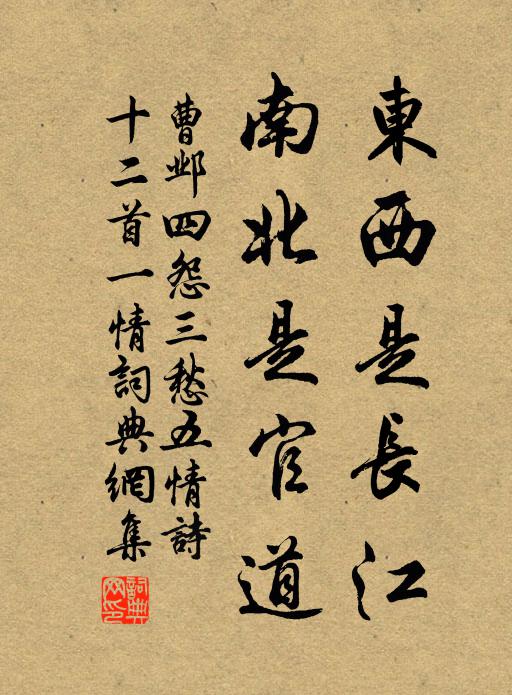 東西是長江
南北是官道
曹邺四怨三愁五情詩
十二首一情詞典網集
詞典網印